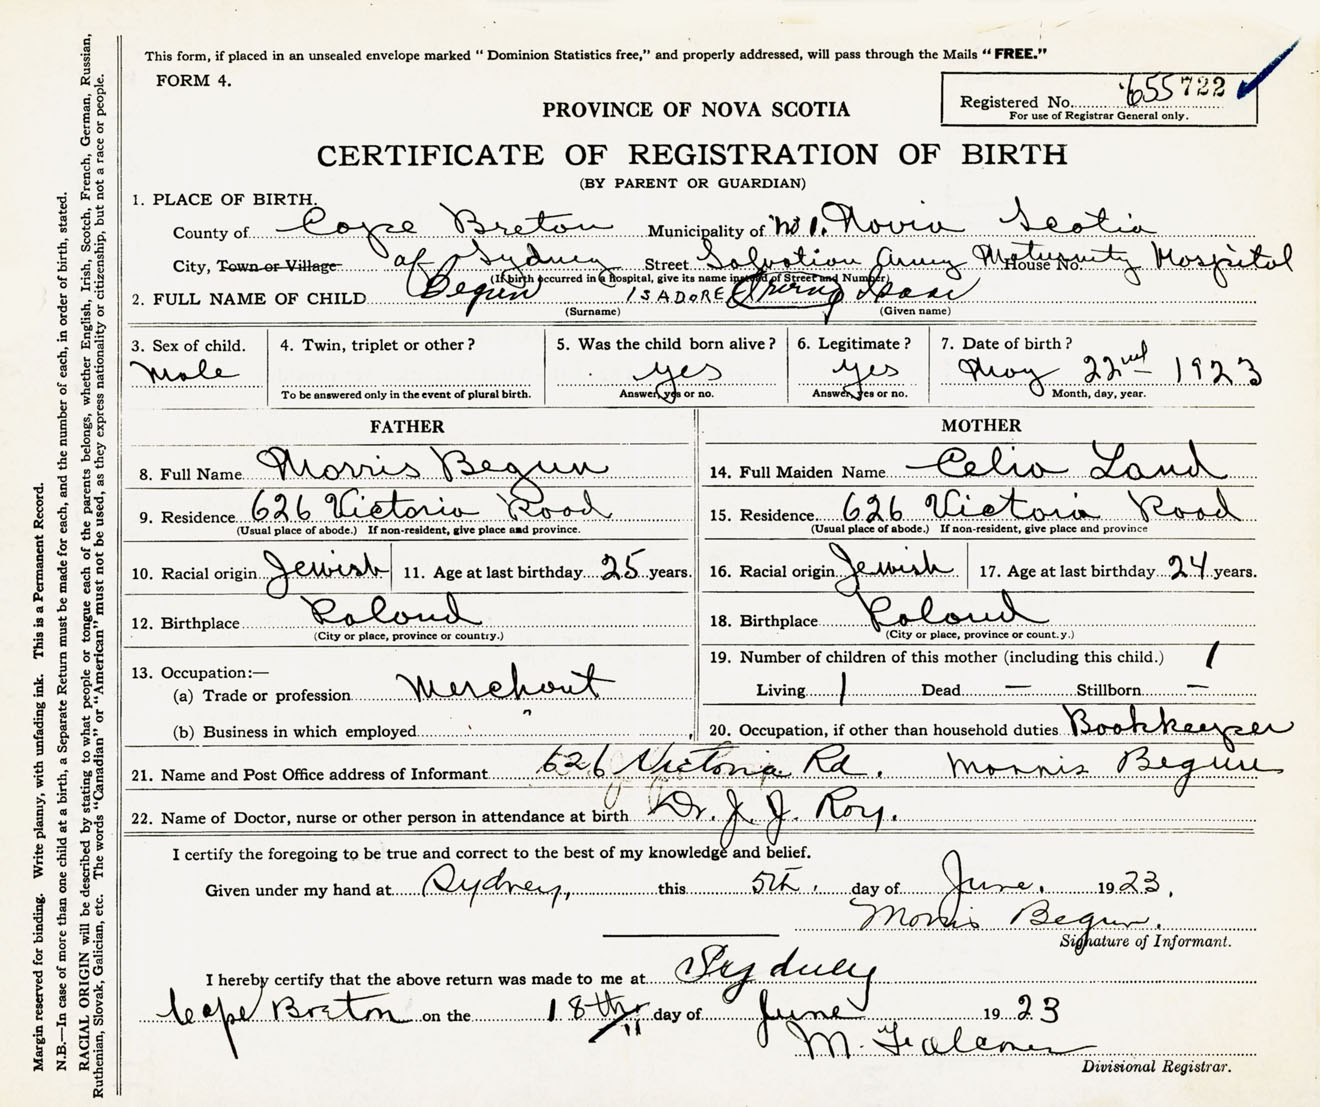 This form, if placed in an unsealed envelope marked "Dominion Statistics free," and properly addressed, will pass through the Mails "FREE."
FORM 4.
Registered No. 655722
For use of Registrar General only.
PROVINCE OF NOVA SCOTIA
CERTIFICATE OF REGISTRATION OF BIRTH
(BY PARENT OR GUARDIAN)
1. PLACE OF BIRTH.
County of Cape Breton Municipality of Novia Scotia
City, Town or Village of Sydney Street Salvation Army Maternity Hospital House No.
(If birth occurred in a hospital, give its name instead of Street and Number)
2. FULL NAME OF CHILD Begun ISADORE Irving Isaac
(Surname) (Given name)
3. Sex of child. 4. Twin, triplet or other? 5. Was the child born alive? 6. Legitimate? 7. Date of birth?
Male yes yes May 22nd 1923
To be answered only in the event of plural birth. Answer, yes or no. Answer, yes or no. Month, day, year.
FATHER MOTHER
8. Full Name Morris Begun 14. Full Maiden Name Celia Land
9. Residence 626 Victoria Road 15. Residence 626 Victoria Road
(Usual place of abode.) If non-resident, give place and province. (Usual place of abode.) If non-resident, give place and province
10. Racial origin Jewish 11. Age at last birthday 25 years. 16. Racial origin Jewish 17. Age at last birthday 24 years.
12. Birthplace Poland 18. Birthplace Poland
(City or place, province or country.) (City or place, province or country.)
13. Occupation:— 19. Number of children of this mother (including this child.) 1
(a) Trade or profession Merchant Living 1 Dead — Stillborn —
(b) Business in which employed " 20. Occupation, if other than household duties Bookkeeper
21. Name and Post Office address of Informant 626 Victoria Rd. Morris Begun
22. Name of Doctor, nurse or other person in attendance at birth Dr. J. J. Roy.
I certify the foregoing to be true and correct to the best of my knowledge and belief.
Given under my hand at Sydney, this 5th. day of June. 1923.
Morris Begun.
Signature of Informant.
I hereby certify that the above return was made to me at Sydney
Cape Breton on the 18th day of June 1923
M. Falconer
Divisional Registrar.
Margin reserved for binding. Write plainly, with unfading ink. This is a Permanent Record.
N.B.—In case of more than one child at a birth, a Separate Return must be made for each, and the number of each, in order of birth, stated.
RACIAL ORIGIN will be described by stating to what people or tongue each of the parents belongs, whether English, Irish, Scotch, French, German, Russian,
Ruthenian, Slovak, Galician, etc. The words "Canadian" or "American" must not be used, as they express nationality or citizenship, but not a race or people.